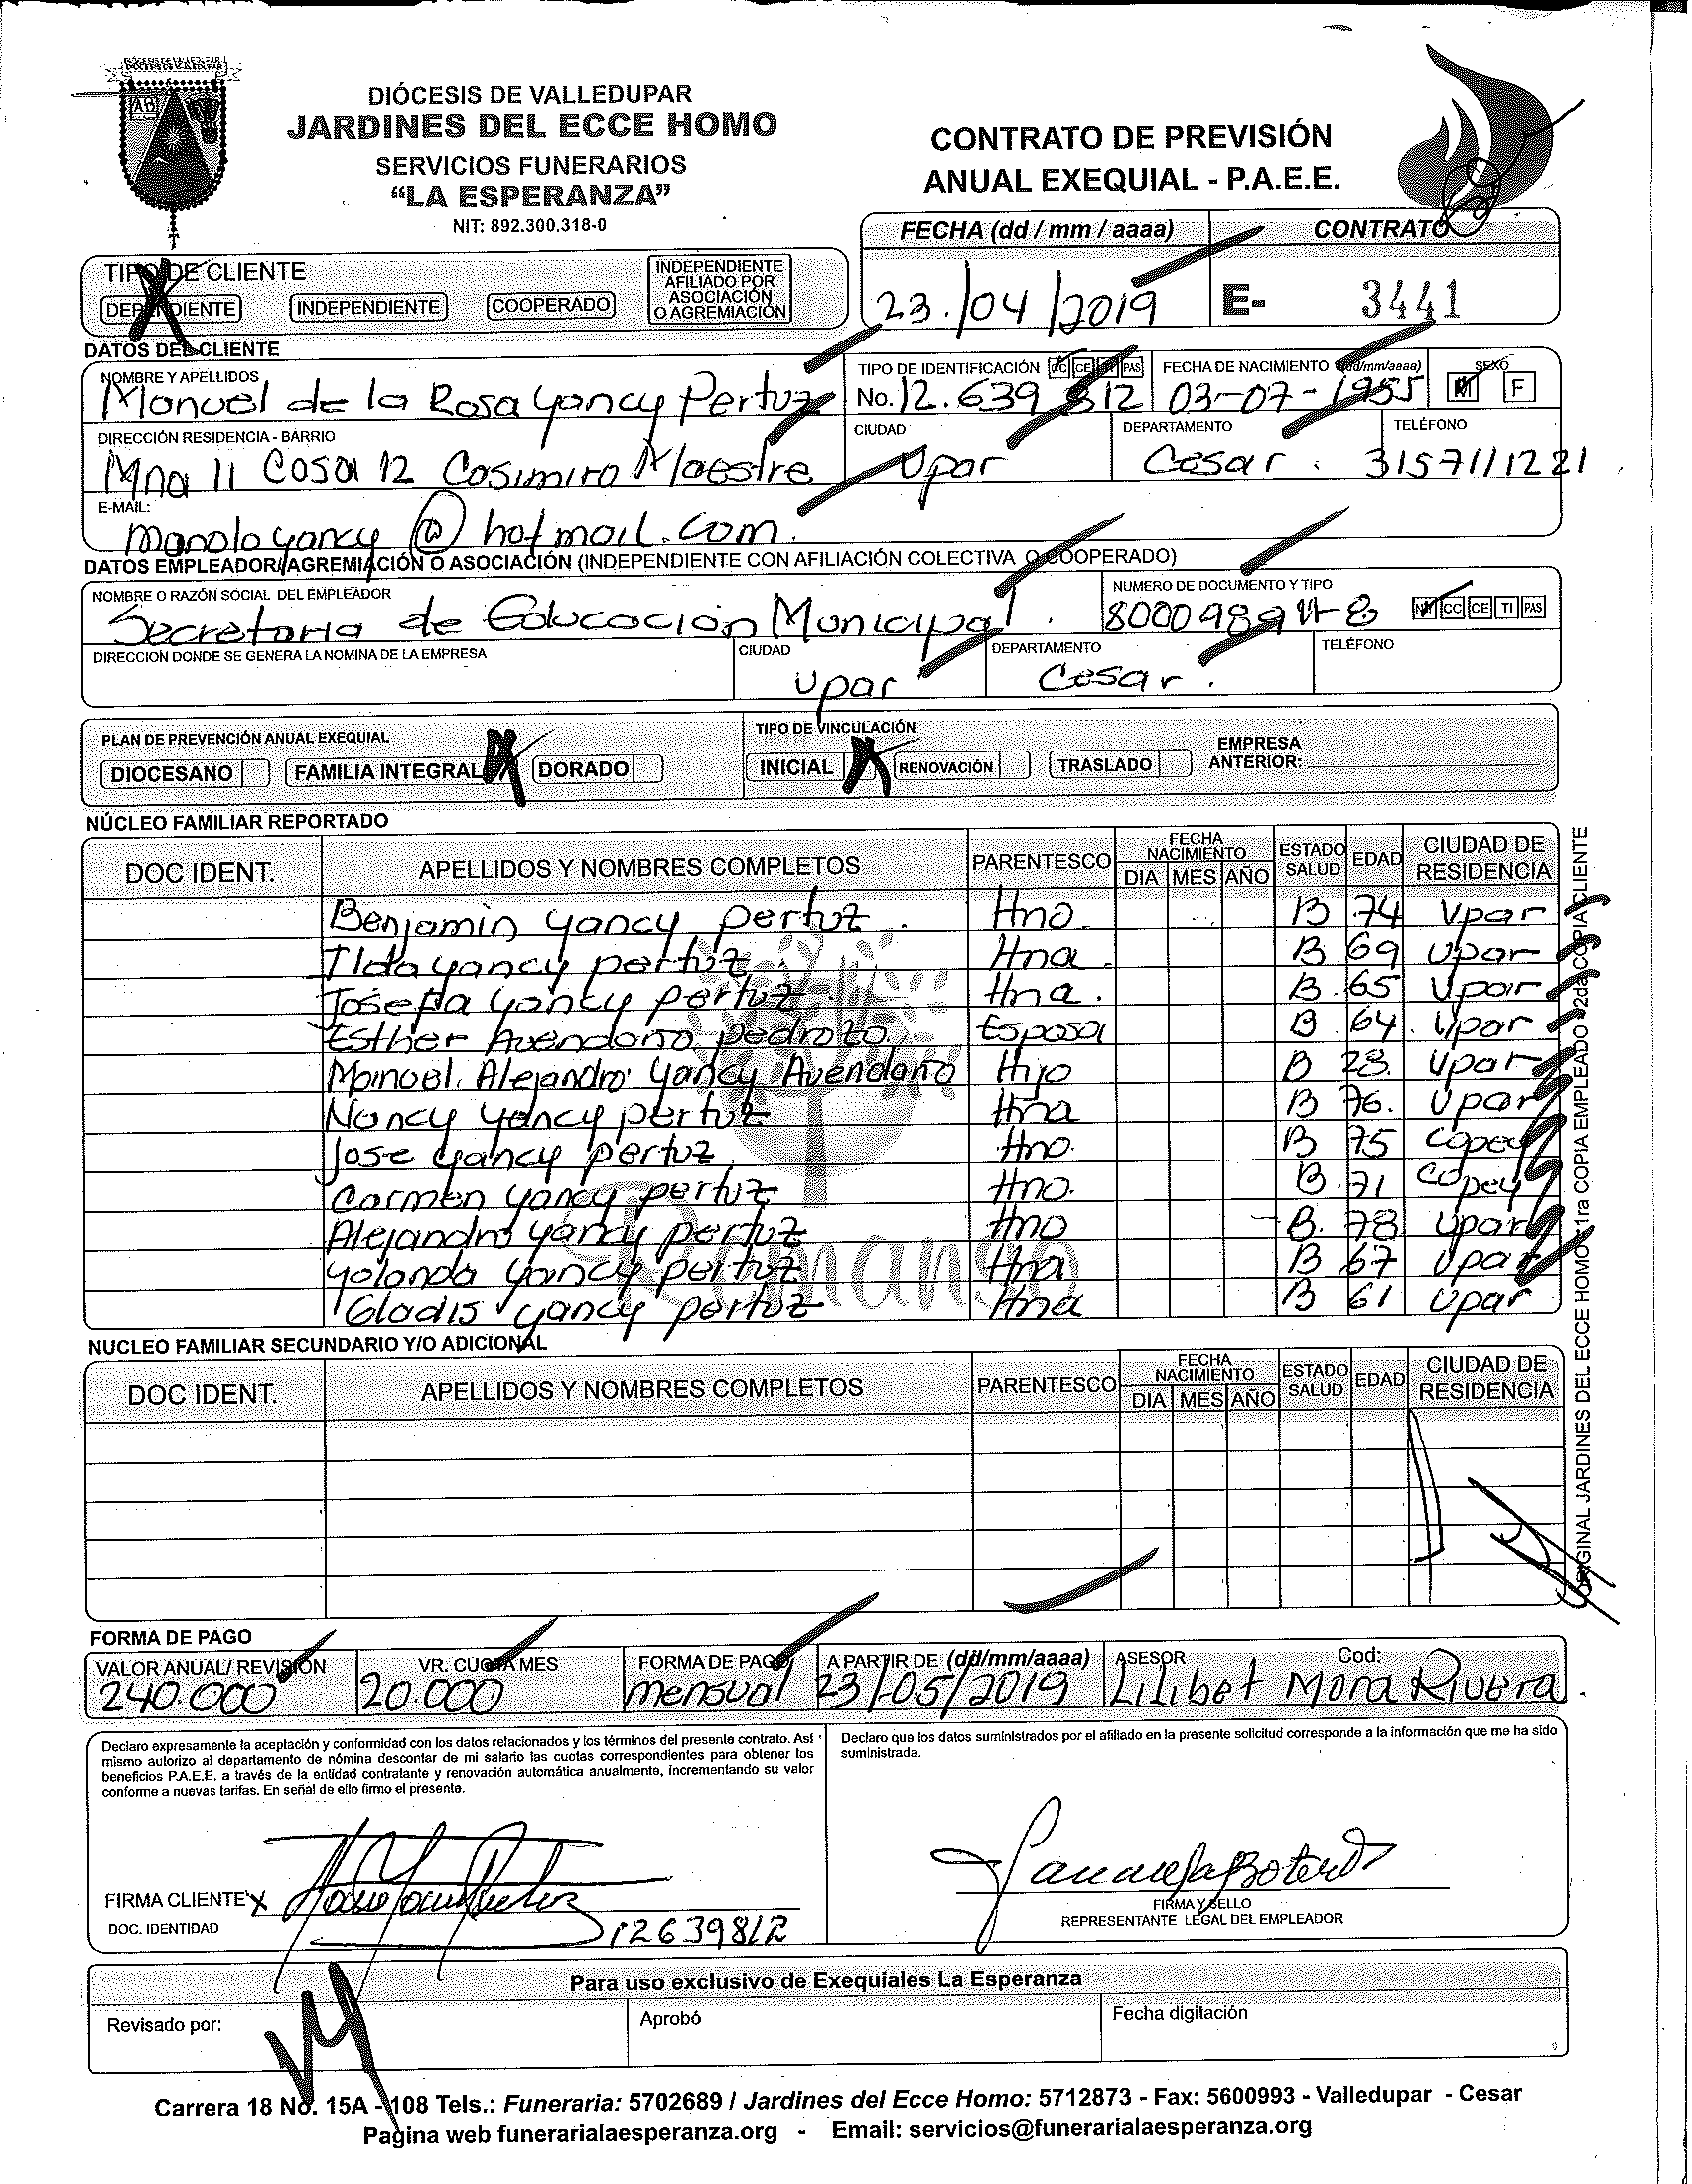 DIÓCESIS DE VALLEDUPAR
JARDINES DEL ECCE HOMO
SERVICIOS FUNERARIOS
“LA ESPERANZA”
NIT: 892.300.318-0
CONTRATO DE PREVISIÓN
ANUAL EXEQUIAL - P.A.E.E.
FECHA (dd / mm / aaaa) CONTRATO
23/04/2019 E- 3441
TIPO DE CLIENTE
DEPENDIENTE INDEPENDIENTE COOPERADO INDEPENDIENTE AFILIADO POR ASOCIACIÓN O AGREMIACIÓN
DATOS DEL CLIENTE
NOMBRE Y APELLIDOS TIPO DE IDENTIFICACIÓN CC CE TI PAS FECHA DE NACIMIENTO (dd/mm/aaaa) SEXO
Manuel de la Rosa Yancy Pertuz No. 12.639 812 03-07-1955 M F
DIRECCIÓN RESIDENCIA - BARRIO CIUDAD DEPARTAMENTO TELÉFONO
Mna 11 Casa 12 Casimiro Maestre Upar Cesar. 3157111221
E-MAIL:
manoloyancy@hotmail.com.
DATOS EMPLEADOR/AGREMIACIÓN O ASOCIACIÓN (INDEPENDIENTE CON AFILIACIÓN COLECTIVA O COOPERADO)
NOMBRE O RAZÓN SOCIAL DEL EMPLEADOR NUMERO DE DOCUMENTO Y TIPO
Secretaria de Educación Municipal. 800098911-8 NIT CC CE TI PAS
DIRECCION DONDE SE GENERA LA NOMINA DE LA EMPRESA CIUDAD DEPARTAMENTO TELÉFONO
Upar Cesar.
PLAN DE PREVENCIÓN ANUAL EXEQUIAL TIPO DE VINCULACIÓN
DIOCESANO FAMILIA INTEGRAL DORADO INICIAL RENOVACIÓN TRASLADO EMPRESA ANTERIOR:
NÚCLEO FAMILIAR REPORTADO
DOC IDENT. APELLIDOS Y NOMBRES COMPLETOS PARENTESCO FECHA NACIMIENTO DIA MES AÑO ESTADO SALUD EDAD CIUDAD DE RESIDENCIA
Benjamin yancy pertuz Hno. B 74 Upar
Ilda yancy pertuz Hna. B 69 Upar
Josefa yancy pertuz Hna. B. 65 Upar
Esther Avendaño pedrozo Esposa B. 64. Upar
Manuel. Alejandro Yancy Avendaño Hijo B 28. Upar
Nancy yancy pertuz Hna B 76. Upar
Jose yancy pertuz Hno. B 75 Copey
Carmen yancy pertuz Hno. B. 71 Copey
Alejandro yancy pertuz Hno B. 78 Upar
Yolanda yancy pertuz Hna B 67 Upar
Gladis yancy pertuz Hna B 61 Upar
Remanso
NUCLEO FAMILIAR SECUNDARIO Y/O ADICIONAL
DOC IDENT. APELLIDOS Y NOMBRES COMPLETOS PARENTESCO FECHA NACIMIENTO DIA MES AÑO ESTADO SALUD EDAD CIUDAD DE RESIDENCIA
ORIGINAL JARDINES DEL ECCE HOMO 1ra COPIA EMPLEADO 2da COPIA CLIENTE
FORMA DE PAGO
VALOR ANUAL/ REVISIÓN VR. CUOTA MES FORMA DE PAGO A PARTIR DE (dd/mm/aaaa) ASESOR Cod:
240.000 20.000 mensual 23/05/2019 Lilibet Mora Rivera.
Declaro expresamente la aceptación y conformidad con los datos relacionados y los términos del presente contrato. Así
mismo autorizo al departamento de nómina descontar de mi salario las cuotas correspondientes para obtener los
beneficios P.A.E.E. a través de la entidad contratante y renovación automática anualmente, incrementando su valor
conforme a nuevas tarifas. En señal de ello firmo el presente.
Declaro que los datos suministrados por el afiliado en la presente solicitud corresponde a la información que me ha sido
suministrada.
FIRMA CLIENTE X
DOC. IDENTIDAD 12639812
FIRMA Y SELLO
REPRESENTANTE LEGAL DEL EMPLEADOR
Para uso exclusivo de Exequiales La Esperanza
Revisado por: Aprobó Fecha digitación
Carrera 18 No. 15A - 108 Tels.: Funeraria: 5702689 / Jardines del Ecce Homo: 5712873 - Fax: 5600993 - Valledupar - Cesar
Pagina web funerarialaesperanza.org - Email: servicios@funerarialaesperanza.org